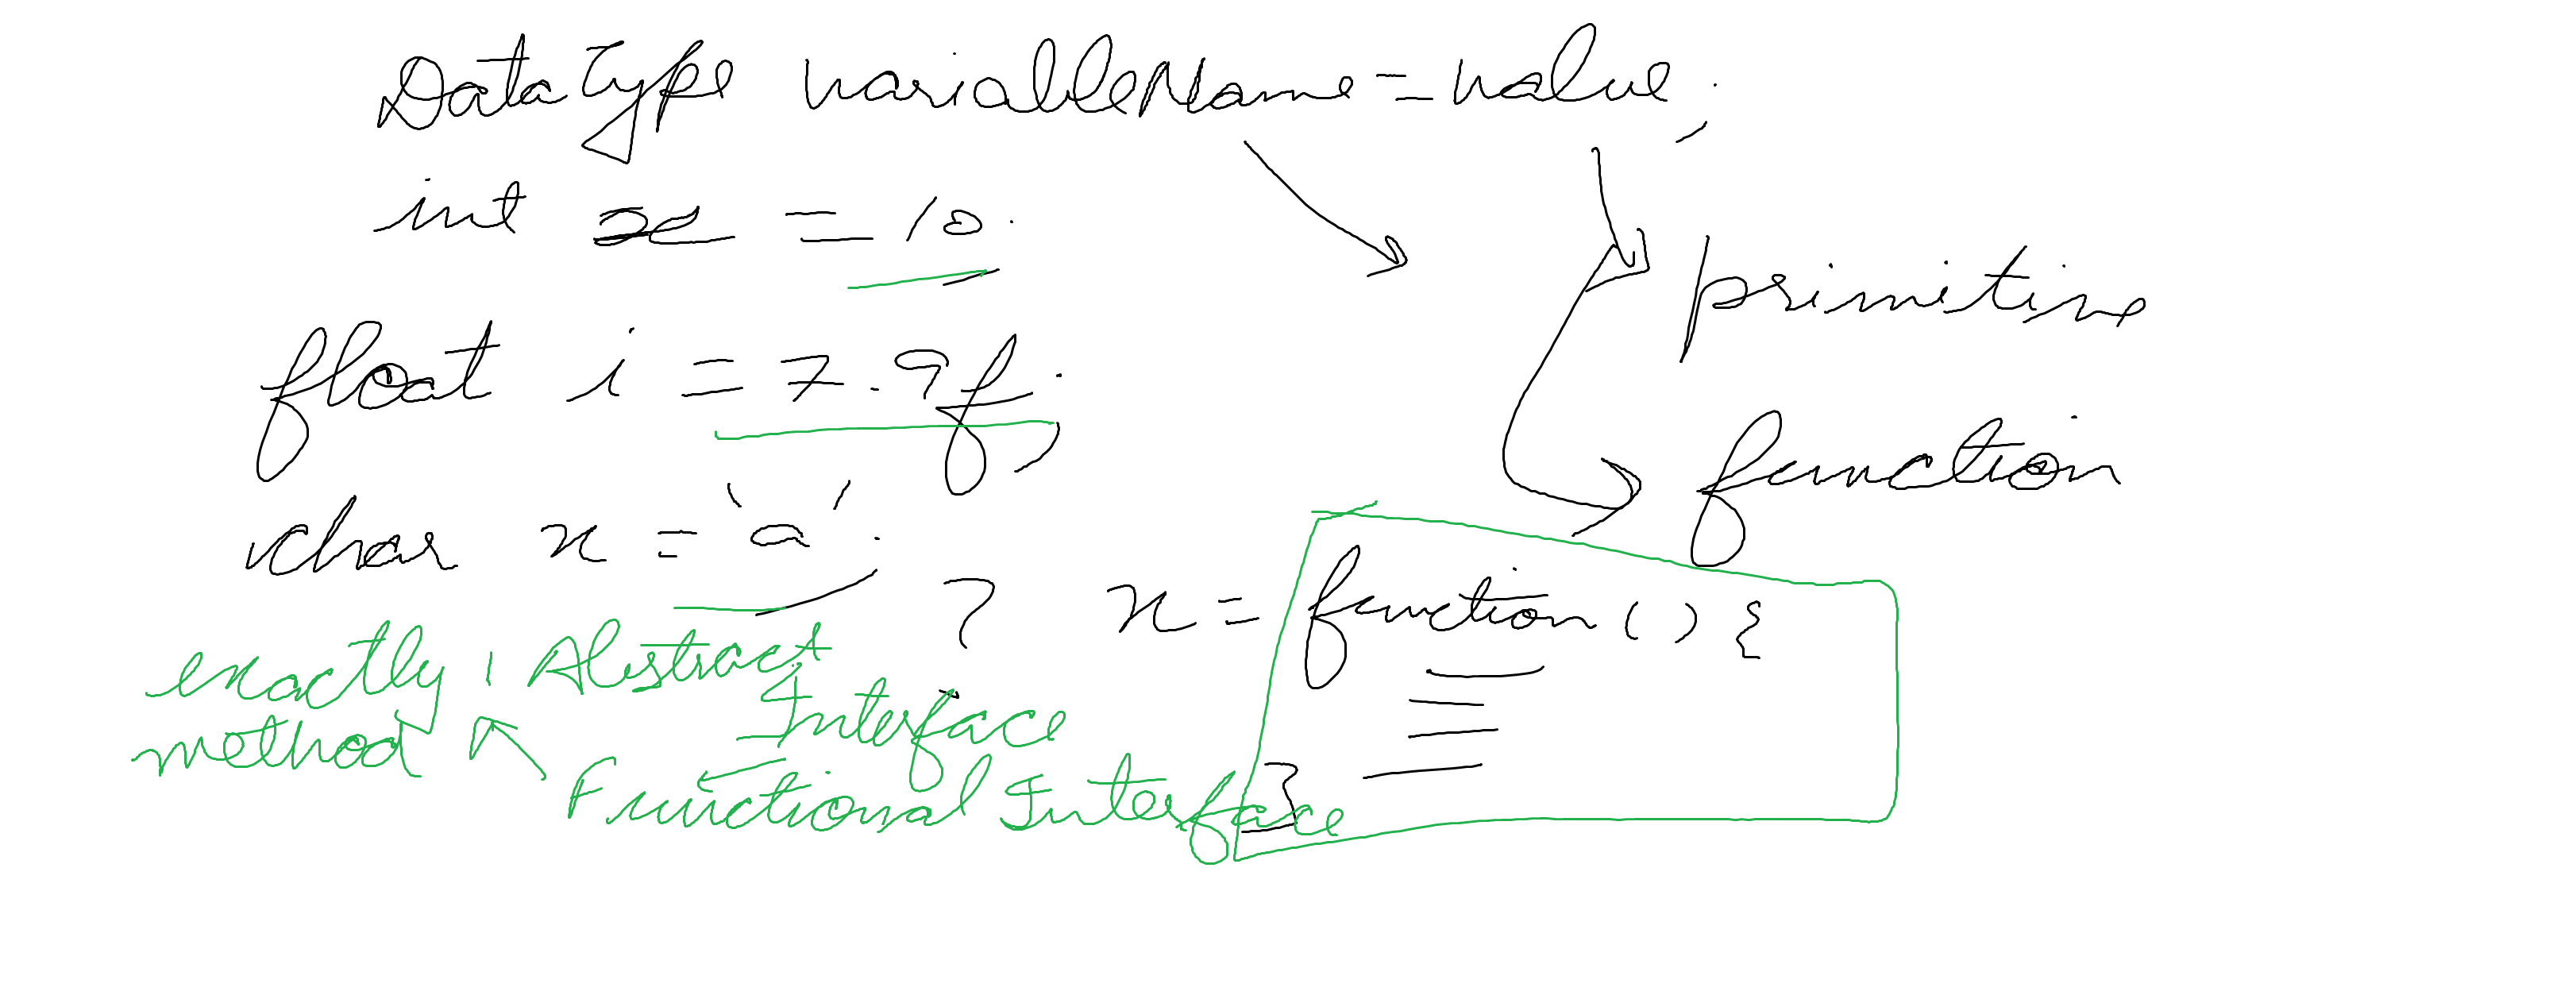 DataType variableName = value;
int x = 10;
primitive
float i = 7.9f;
function
char x = 'a';
? x = function() {
}
exactly 1 Abstract
method
Interface
Functional Interface